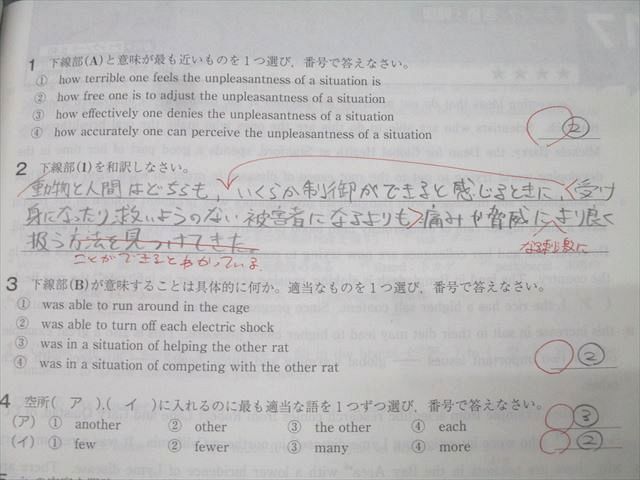 1 下線部(A)と意味が最も近いものを1つ選び,番号で答えなさい。
① how terrible one feels the unpleasantness of a situation is
② how free one is to adjust the unpleasantness of a situation
③ how effectively one denies the unpleasantness of a situation
④ how accurately one can perceive the unpleasantness of a situation
②
2 下線部(1)を和訳しなさい。
動物と人間はどちらも,いくらか制御ができると感じるときに,<受け
身になったり救いようのない被害者になるよりも>痛みや脅威により良く
扱う方法を見つけてきた
なる刺激に
ことができるとわかっている。
3 下線部(B)が意味することは具体的に何か。適当なものを1つ選び,番号で答えなさい。
① was able to run around in the cage
② was able to turn off each electric shock
③ was in a situation of helping the other rat
④ was in a situation of competing with the other rat
②
4 空所( ア ),( イ )に入れるのに最も適当な語を1つずつ選び,番号で答えなさい。
(ア) ① another ② other ③ the other ④ each ③
(イ) ① few ② fewer ③ many ④ more ②